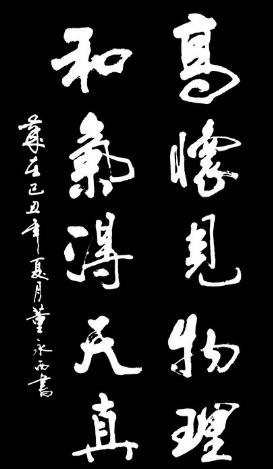 高懷見物理
和氣得天真
歲在己丑年夏月董永西書